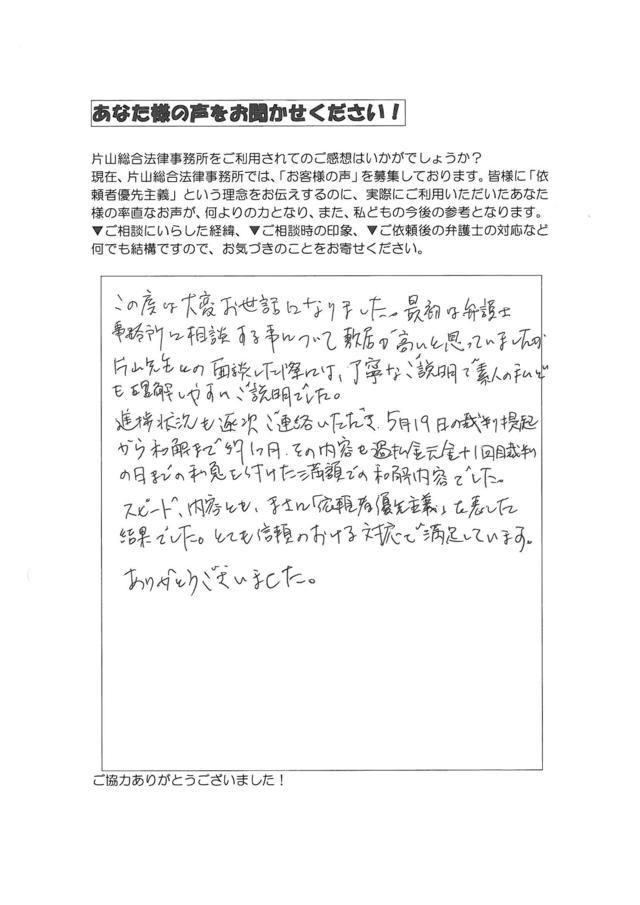 あなた様の声をお聞かせください！
片山総合法律事務所をご利用されてのご感想はいかがでしょうか？
現在、片山総合法律事務所では、「お客様の声」を募集しております。皆様に「依
頼者優先主義」という理念をお伝えするのに、実際にご利用いただいたあなた
様の率直なお声が、何よりの力となり、また、私どもの今後の参考となります。
▼ご相談にいらした経緯、▼ご相談時の印象、▼ご依頼後の弁護士の対応など
何でも結構ですので、お気づきのことをお寄せください。
この度は大変お世話になりました。最初は弁護士
事務所に相談する事について敷居が高いと思っていましたが
片山先生との面談した際には、丁寧なご説明で素人の私で
も理解しやすいご説明でした。
進捗状況も逐次ご連絡いただき、5月19日の裁判提起
から和解まで約1ヶ月、その内容も過払金元金+1回目裁判
の日までの利息を付けた満額での和解内容でした。
スピード、内容とも、まさに「依頼者優先主義」を表した
結果でした。とても信頼のおける対応で満足しています。
ありがとうございました。
ご協力ありがとうございました！